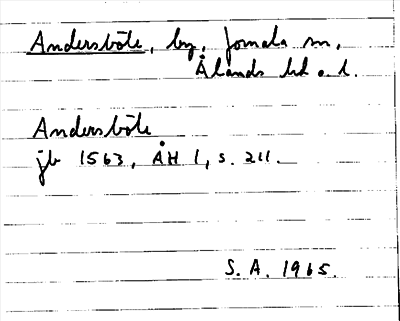 Andersböle, by, Jomala sn,
Ålands hd o. l.
Andersböle
jb 1563, ÅH 1, s. 211.
S. A. 1965.